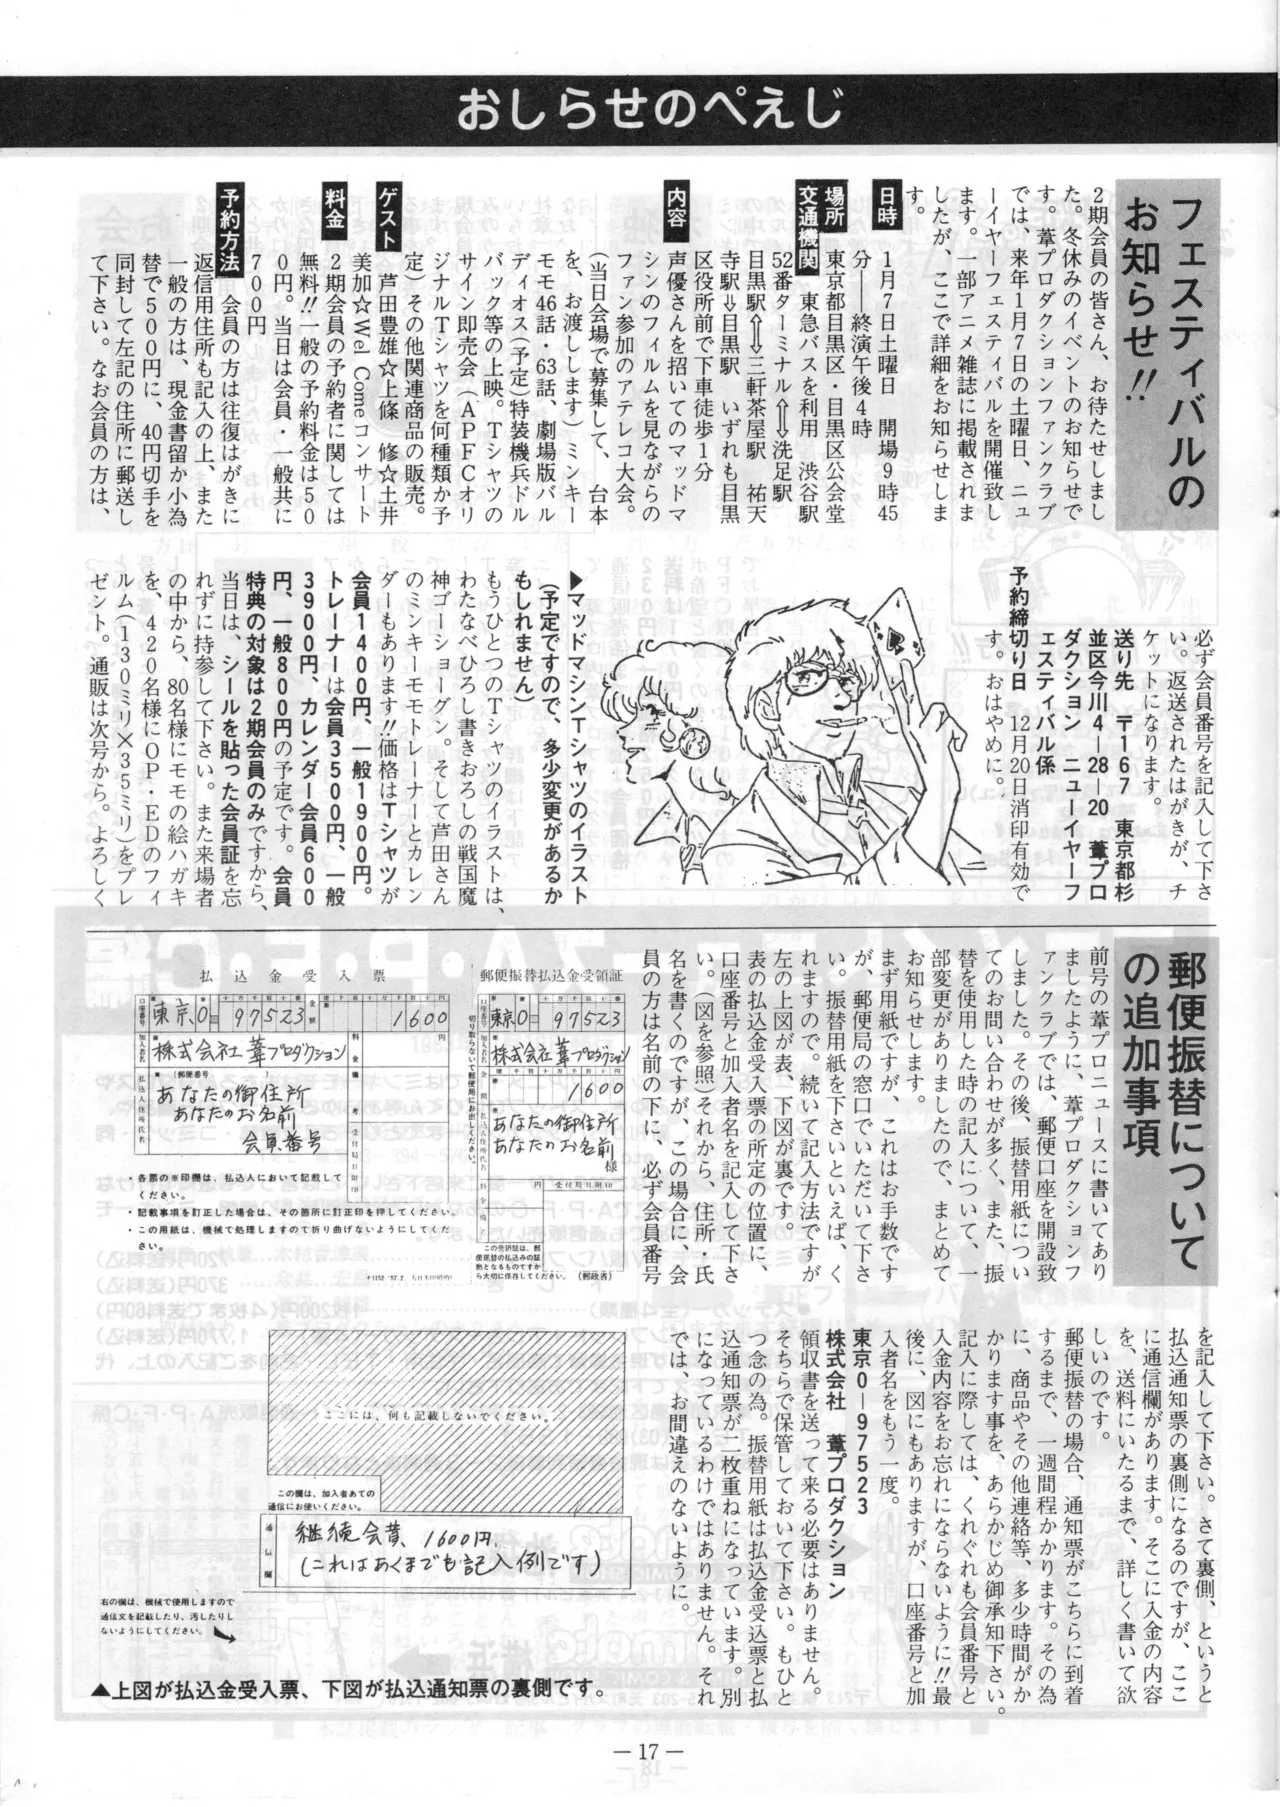 おしらせのぺえじ
フェスティバルの
お知らせ!!
2期会員の皆さん、お待たせしまし
た。冬休みのイベントのお知らせで
す。葦プロダクションファンクラブ
では、来年1月7日の土曜日、ニュ
ーイヤーフェスティバルを開催致し
ます。一部アニメ雑誌に掲載されま
したが、ここで詳細をお知らせしま
す。
日時 1月7日土曜日 開場9時45
分——終演午後4時
場所 東京都目黒区・目黒区公会堂
交通機関 東急バスを利用 渋谷駅
52番ターミナル⇔洗足駅
目黒駅⇔三軒茶屋駅 祐天
寺駅⇨目黒駅 いずれも目黒
区役所前で下車徒歩1分
内容 声優さんを招いてのマッドマ
シンのフィルムを見ながらの
ファン参加のアテレコ大会。
(当日会場で募集して、台本
を、お渡しします)ミンキー
モモ46話・63話、劇場版バル
ディオス(予定)特装機兵ドル
バック等の上映。Tシャツの
サイン即売会(APFCオリ
ジナルTシャツを何種類か予
定)その他関連商品の販売。
ゲスト 芦田豊雄☆上條 修☆土井
美加☆Wel Comeコンサート
料金 2期会員の予約者に関しては
無料!!一般の予約料金は50
0円。当日は会員・一般共に
700円
予約方法 会員の方は往復はがきに
返信用住所も記入の上、また
一般の方は、現金書留か小為
替で500円に、40円切手を
同封して左記の住所に郵送し
て下さい。なお会員の方は、
必ず会員番号を記入して下さ
い。返送されたはがきが、チ
ケットになります。
送り先 〒167 東京都杉
並区今川4—28—20 葦プロ
ダクション ニューイヤーフ
ェスティバル係
予約締切り日 12月20日消印有効で
す。おはやめに。
▶マッドマシンTシャツのイラスト
(予定ですので、多少変更があるか
もしれません)
もうひとつのTシャツのイラストは、
わたなべひろし書きおろしの戦国魔
神ゴーショーグン。そして芦田さん
のミンキーモモトレーナーとカレン
ダーもあります!!価格はTシャツが
会員1400円、一般1900円。
トレーナーは会員3500円、一般
3900円、カレンダー会員600
円、一般800円の予定です。会員
特典の対象は2期会員のみですから、
当日は、シールを貼った会員証を忘
れずに持参して下さい。また来場者
の中から、80名様にモモの絵ハガキ
を、420名様にOP・EDのフィ
ルム(130ミリ×35ミリ)をプレ
ゼント。通販は次号から。よろしく
郵便振替について
の追加事項
前号の葦プロニュースに書いてあり
ましたように、葦プロダクションフ
ァンクラブでは、郵便口座を開設致
しました。その後、振替用紙につい
てのお問い合わせが多く、また、振
替を使用した時の記入について、一
部変更がありましたので、まとめて
お知らせします。
まず用紙ですが、これはお手数です
が、郵便局の窓口でいただいて下さ
い。振替用紙を下さいといえば、く
れますので。続いて記入方法ですが
左の上図が表、下図が裏です。
表の払込金受入票の所定の位置に、
口座番号と加入者名を記入して下さ
い。(図を参照)それから、住所・氏
名を書くのですが、この場合に、会
員の方は名前の下に、必ず会員番号
を記入して下さい。さて裏側、というと
払込通知票の裏側になるのですが、ここ
に通信欄があります。そこに入金の内容
を、送料にいたるまで、詳しく書いて欲
しいのです。
郵便振替の場合、通知票がこちらに到着
するまで、一週間程かかります。その為
に、商品やその他連絡等、多少時間がか
かります事を、あらかじめ御承知下さい。
記入に際しては、くれぐれも会員番号と
入金内容をお忘れにならないように!!最
後に、図にもありますが、口座番号と加
入者名をもう一度。
東京0—97523
株式会社 葦プロダクション
領収書を送って来る必要はありません。
そちらで保管しておいて下さい。もひと
つ念の為。振替用紙は払込金受込票と払
込通知票が二枚重ねになっています。別
になっているわけではありません。それ
では、お間違えのないように。
払込金受入票
口座番号 東京 0 97523 金額 1600
加入者名 株式会社葦プロダクション
払込人住所氏名 (郵便番号)
あなたの御住所
あなたのお名前
会員番号
料金
備考
受付局日附印
・各票の※印欄は、払込人において記載して
ください。
・記載事項を訂正した場合は、その箇所に訂正印を押してください。
・この用紙は、機械で処理しますので折り曲げないようにしてくだ
さい。
切り取らないで郵便局にお出しください。
郵便振替払込金受領証
口座番号 東京0 97523
加入者名 株式会社葦プロダクション
金額 1600
払込人住所氏名 あなたの御住所
あなたのお名前
様
料金 円
受付局日附印
この受領証は、郵
便振替の払込みの証
拠となるものですか
ら大切に保存してください。
(郵政省)
ここには、何も記載しないでください。
この欄は、加入者あての
通信にお使いください。
通信欄
継続会費、1600円
(これはあくまでも記入例です)
右の欄は、機械で使用しますので
通信文を記載したり、汚したりし
ないようにしてください。
▲上図が払込金受入票、下図が払込通知票の裏側です。
— 17 —